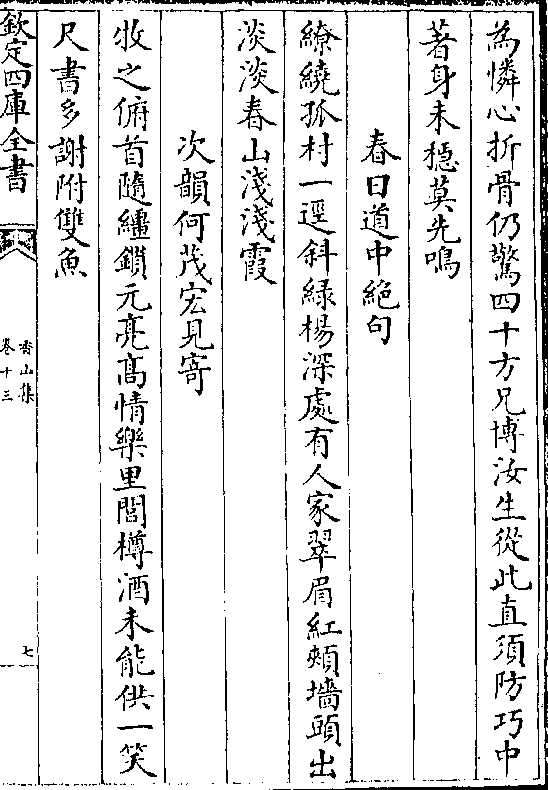 為憐心折骨仍驚四十方兄博汝生從此直須防巧中
著身未穏莫先鳴
春日道中絶句
繚繞孤村一逕斜緑楊深處有人家翠眉紅頰墻頭出
淡淡春山淺淺霞
次韻何茂宏見寄
牧之俯首隨繮鎖元亮髙情樂里閭樽酒未能供一笑
尺書多謝附雙魚
欽定四庫全書
香山集
卷十三
七